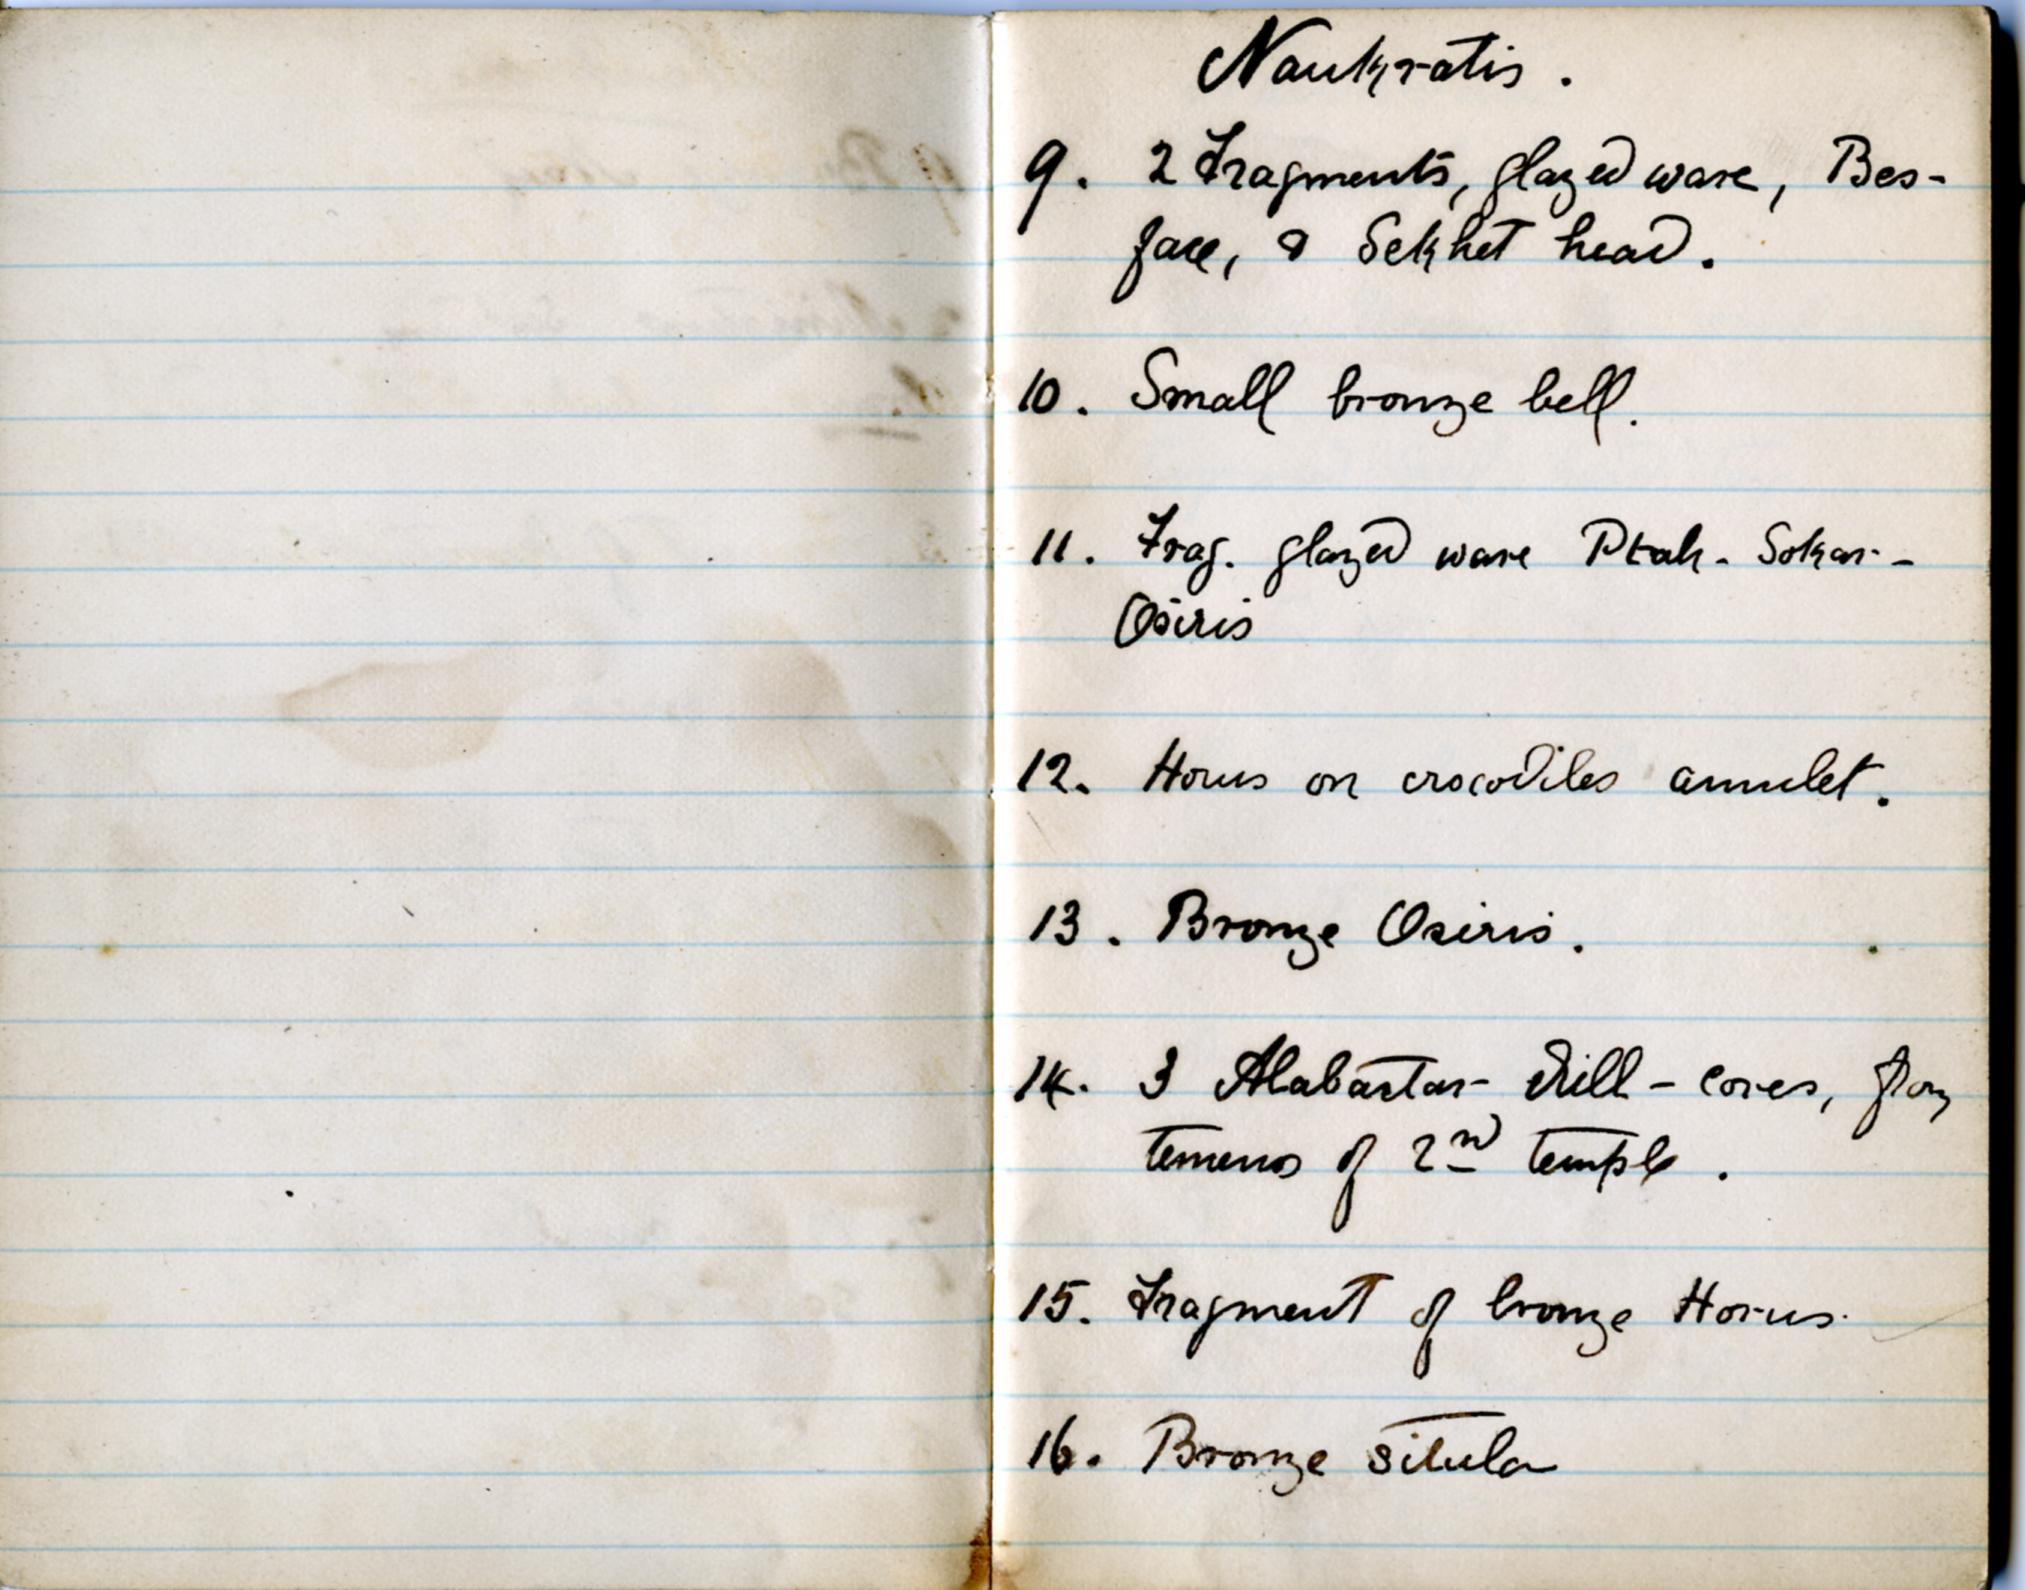 Naukratis.
9. 2 Fragments, glazed ware, Bes-
face, & Sekhet head.
10. Small bronze bell.
11. Frag. glazed ware Ptah-Sokar-
Osiris
12. Horus on crocodiles amulet.
13. Bronze Osiris.
14. 3 Alabastar drill-cores, from
temenos of 2nd temple.
15. Fragment of bronze Horus.
16. Bronze situla